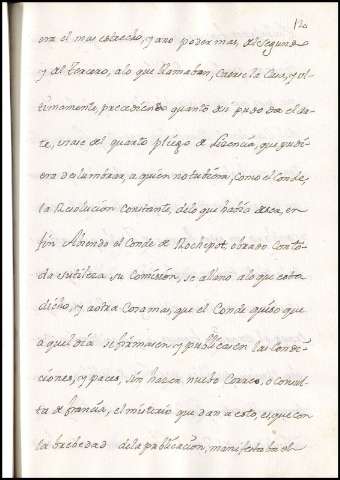 120
era el mas estrecho, y a no poder mas, del Segundo
y del Tercero, a lo que llamaban, Casase la Casa, y ul-
timamente, precediendo quanto de si pudo dar el Ar-
te, vsase del quarto pliego de Licencia, que pudi-
era deslumbrar, a quien no tubiera, como el Conde,
la Resolucion Constante, de lo que hauia de ser, en
fin Abiendo el Conde de Rochepot, obrado Con to-
da sutileza su Comision, se allano a lo que esta
dicho, y a otra Cosa mas, que el Conde quiso que
aquel dia se firmasen, y publicasen las Condi-
ciones, y paces, sin hacer nuebo Correo, o Consul-
ta de francia, el misterio que dan a esto, es, que con
la brebedad de la publicacion, manifestaba el